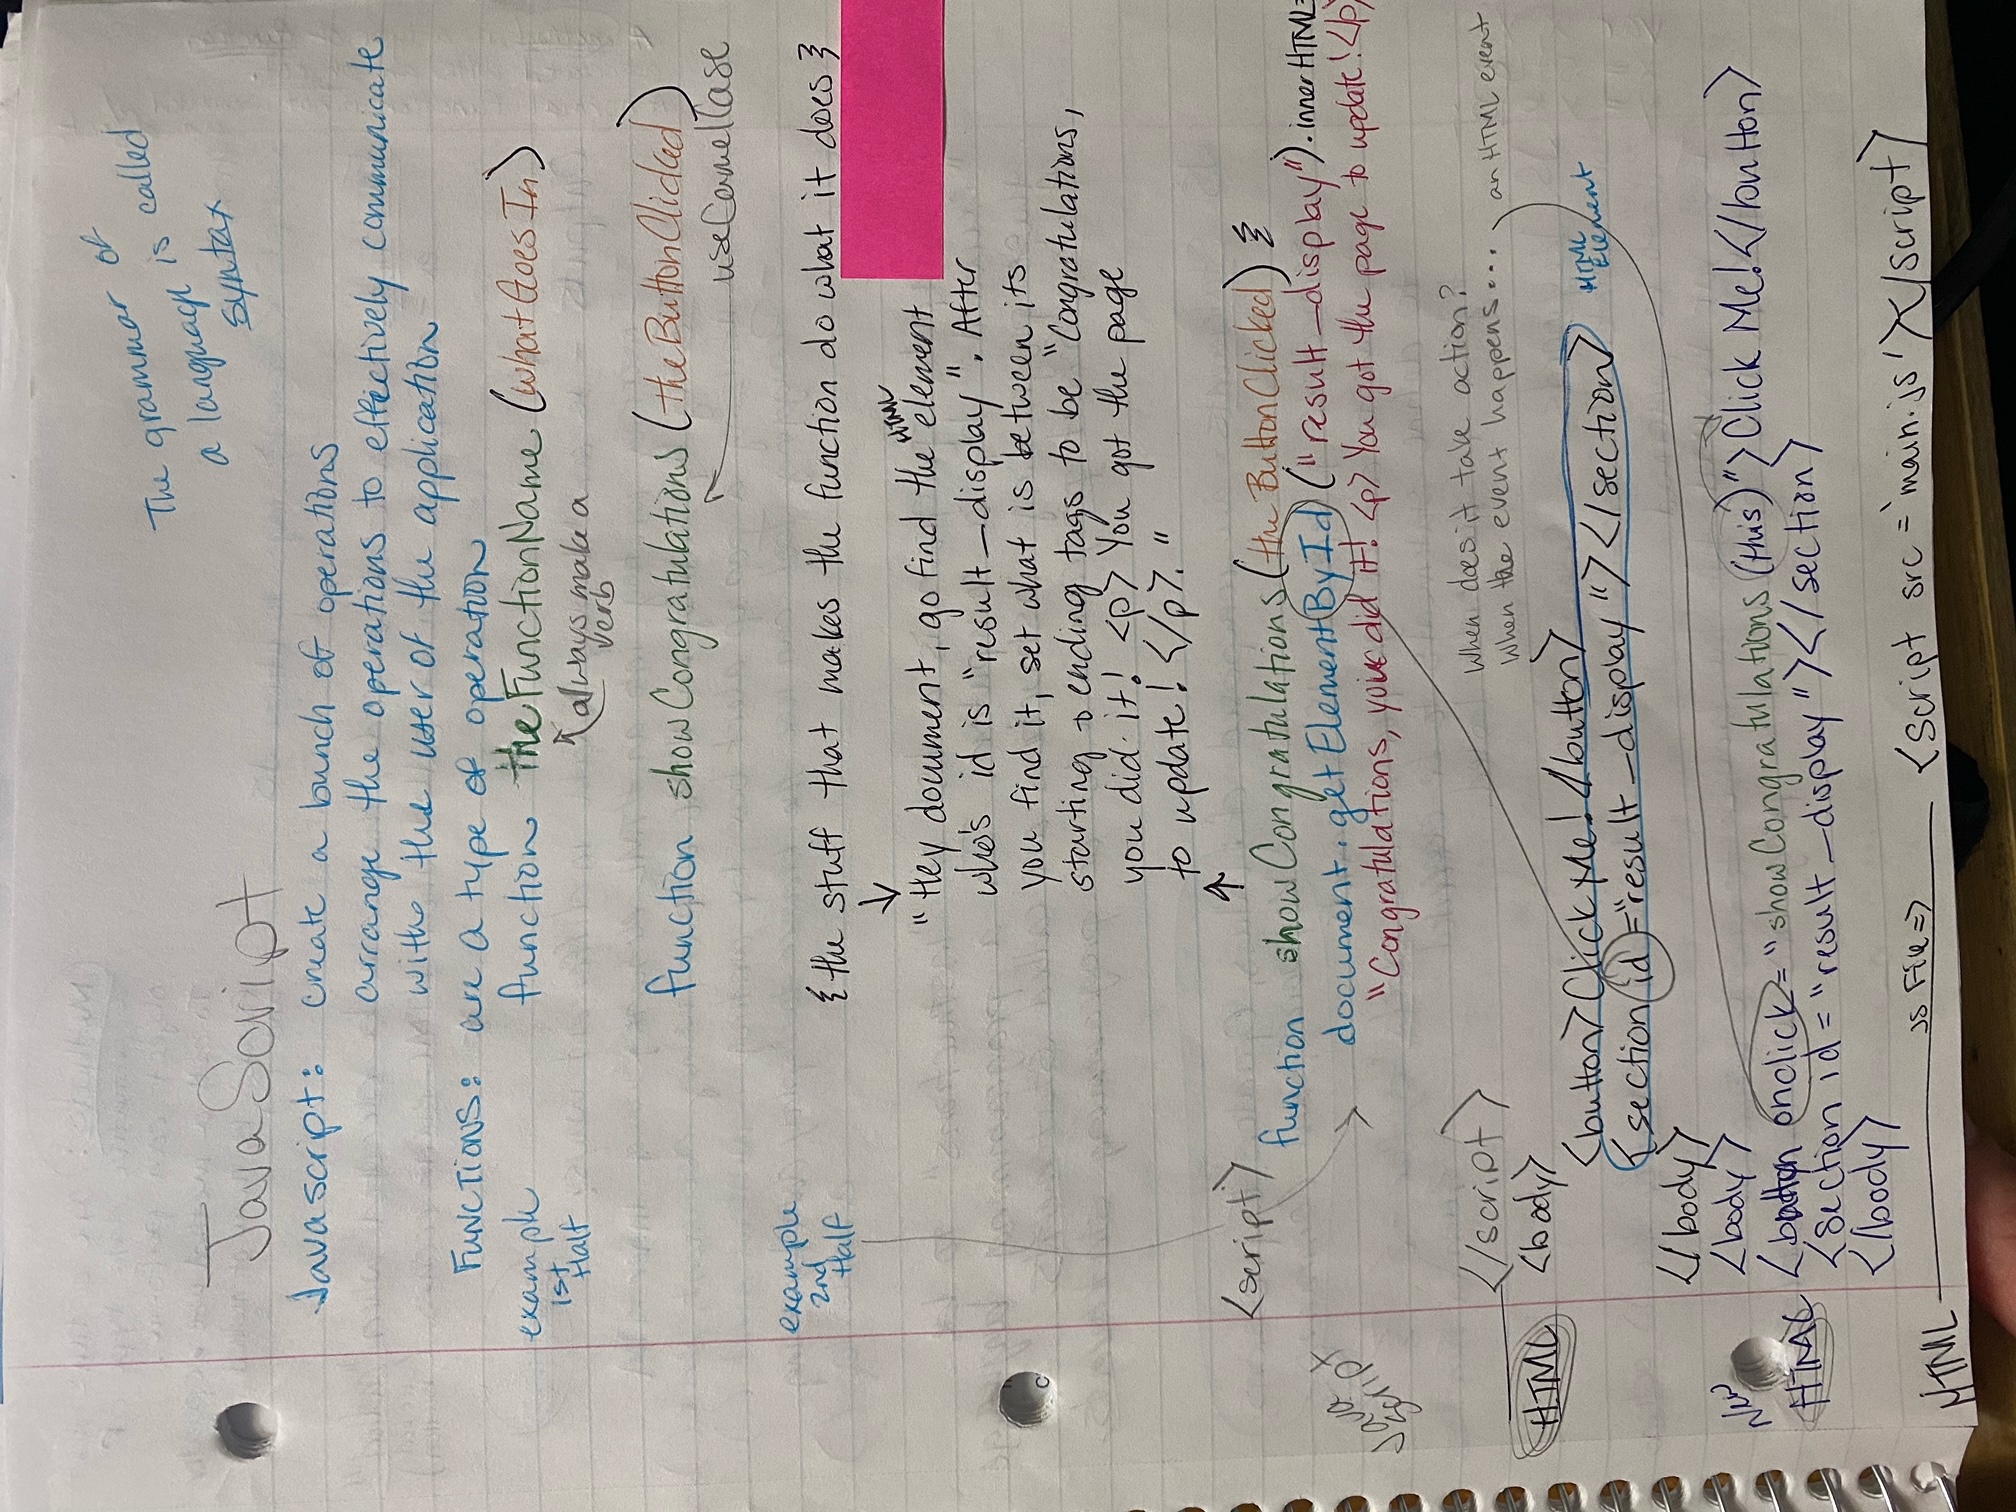 The grammar of
a language is called
syntax
JavaScript
Javascript: create a bunch of operations
arrange the operations to effectively communicate
with the user of the application
FUNCTIONS: are a type of operation
example
1st
Half
function theFunctionName (whatGoesIn)
always make a
verb
function showCongratulations (theButtonClicked)
useCamelCase
example
2nd
Half
{the stuff that makes the function do what it does}
"Hey document, go find the HTML element
who's id is "result_display". After
you find it, set what is between its
starting & ending tags to be "Congratulations,
you did it! <p> You got the page
to update! </p>."
<script>
function showCongratulations (the ButtonClicked) {
document.getElementById ("result_display").innerHTML=
"Congratulations, you did it! <p> You got the page to update! </p>
Java
Script
</script>
When does it take action?
When the event happens... an HTML event
HTML
<body>
<button> Click Me! </button>
<section id="result_display"></section>
HTML
Element
</body>
New
HTML
<body>
<button onclick="showCongratulations (this)">Click Me!</button>
<section id="result_display"></section>
</body>
HTML JS File => <script src='main.js'></script>